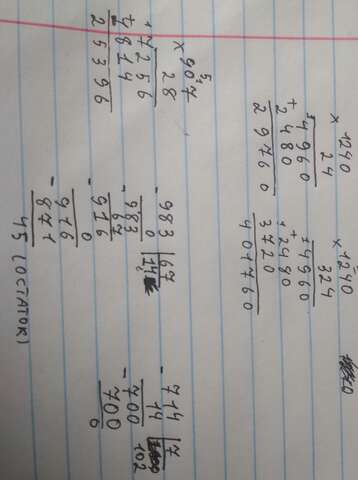 × 1240
24
4960
+ 2480
29760
× 1240
324
4960
+ 2480
3720
401760
× 907
28
7256
+ 1814
25396
- 983 | 67
0 | 14
- 983
67
- 916
0
- 916
871
45 (ОСТАТОК)
- 714 | 7
14
102
- 700
700
0